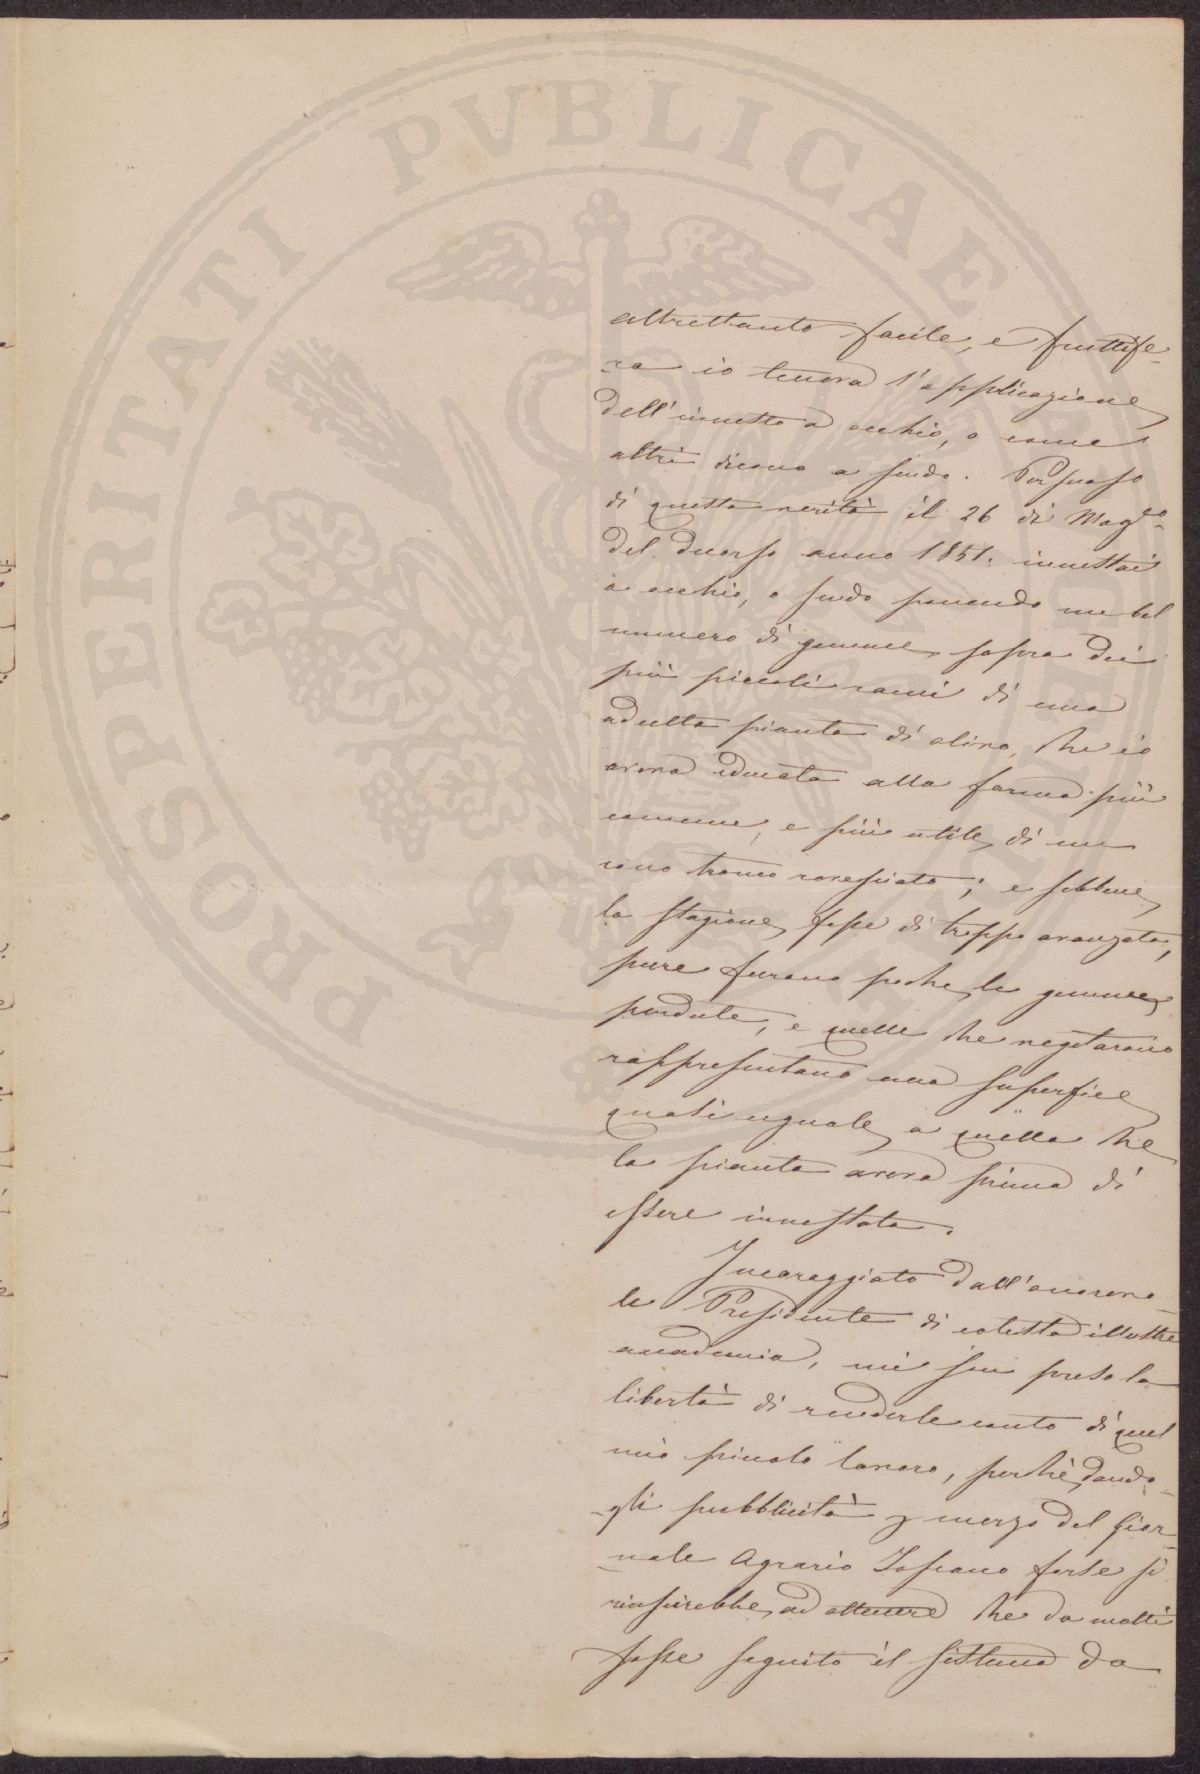 PROSPERITATI PVBLICAE
altrettanto facile, e fruttife-
ra io teneva l'applicazione
dell'innesto a occhio, o come
altri dicono a scudo. Persuaso
di questa verità il 26 di Mag.º
del decorso anno 1851. innestai
a occhio, o scudo ponendo un bel
numero di gemme sopra dei
più piccoli rami di una
adulta pianta di olivo, che io
aveva educata alla forma più
comune, e più utile di un
cono tronco rovesciato; e sebbene
la stagione fosse di troppo avanzata,
pure furono poche le gemme
perdute, e quelle che vegetarono
rappresentano una superfice
quasi uguale a quella che
la pianta aveva prima di
essere innestata.
Incoraggiato dall'onorevo-
le Presidente di cotesta illustre
accademia, mi son preso la
libertà di renderle conto di quel
mio piccolo lavoro, perchè dando-
gli pubblicità p mezzo del Gior-
nale Agrario Toscano forse si
riuscirebbe ad ottenere che da molti
fosse seguito il sistema da